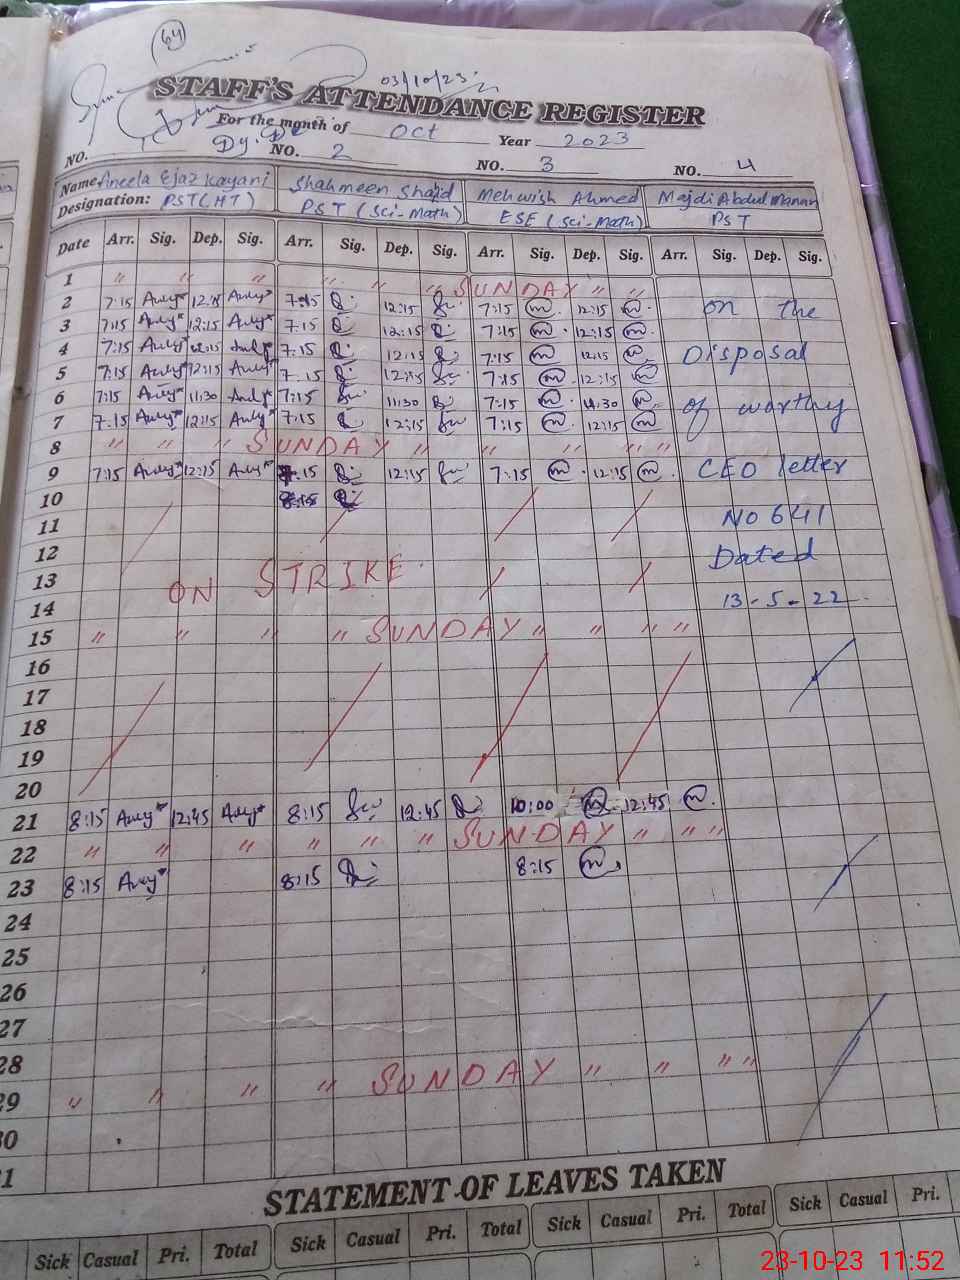 64
03/10/23
STAFF'S ATTENDANCE REGISTER
For the month of Oct Year 2023
Dy.
NO. NO. 2 NO. 3 NO. 4
Name Aneela Ejaz Kayani Shahmeen Shajid Mehwish Ahmed Majdi Abdul Manan
Designation: PST (HT) PST (Sci-Math) ESE (Sci-Math) PST
Date Arr. Sig. Dep. Sig. Arr. Sig. Dep. Sig. Arr. Sig. Dep. Sig. Arr. Sig. Dep. Sig.
1 " " " " " SUNDAY " "
2 7:15 12:15 7:15 12:15 7:15 12:15 on the
3 7:15 12:15 7:15 12:15 7:15 12:15
4 7:15 12:15 7:15 12:15 7:15 12:15 Disposal
5 7:15 12:15 7:15 12:15 7:15 12:15
6 7:15 11:30 7:15 11:30 7:15 11:30 of worthy
7 7:15 12:15 7:15 12:15 7:15 12:15
8 " " " SUNDAY " " " " "
9 7:15 12:15 7:15 12:15 7:15 12:15 CEO letter
10 8:15
11 No 641
12 Dated
13 ON STRIKE
14 13-5-22
15 " " " " SUNDAY " " " "
16
17
18
19
20
21 8:15 12:45 8:15 12:45 10:00 12:45
22 " " " " " " SUNDAY " " "
23 8:15 8:15 8:15
24
25
26
27
28
29 " " " " SUNDAY " " " "
30
31
STATEMENT OF LEAVES TAKEN
Sick Casual Pri. Total Sick Casual Pri. Total Sick Casual Pri. Total Sick Casual Pri.
23-10-23 11:52